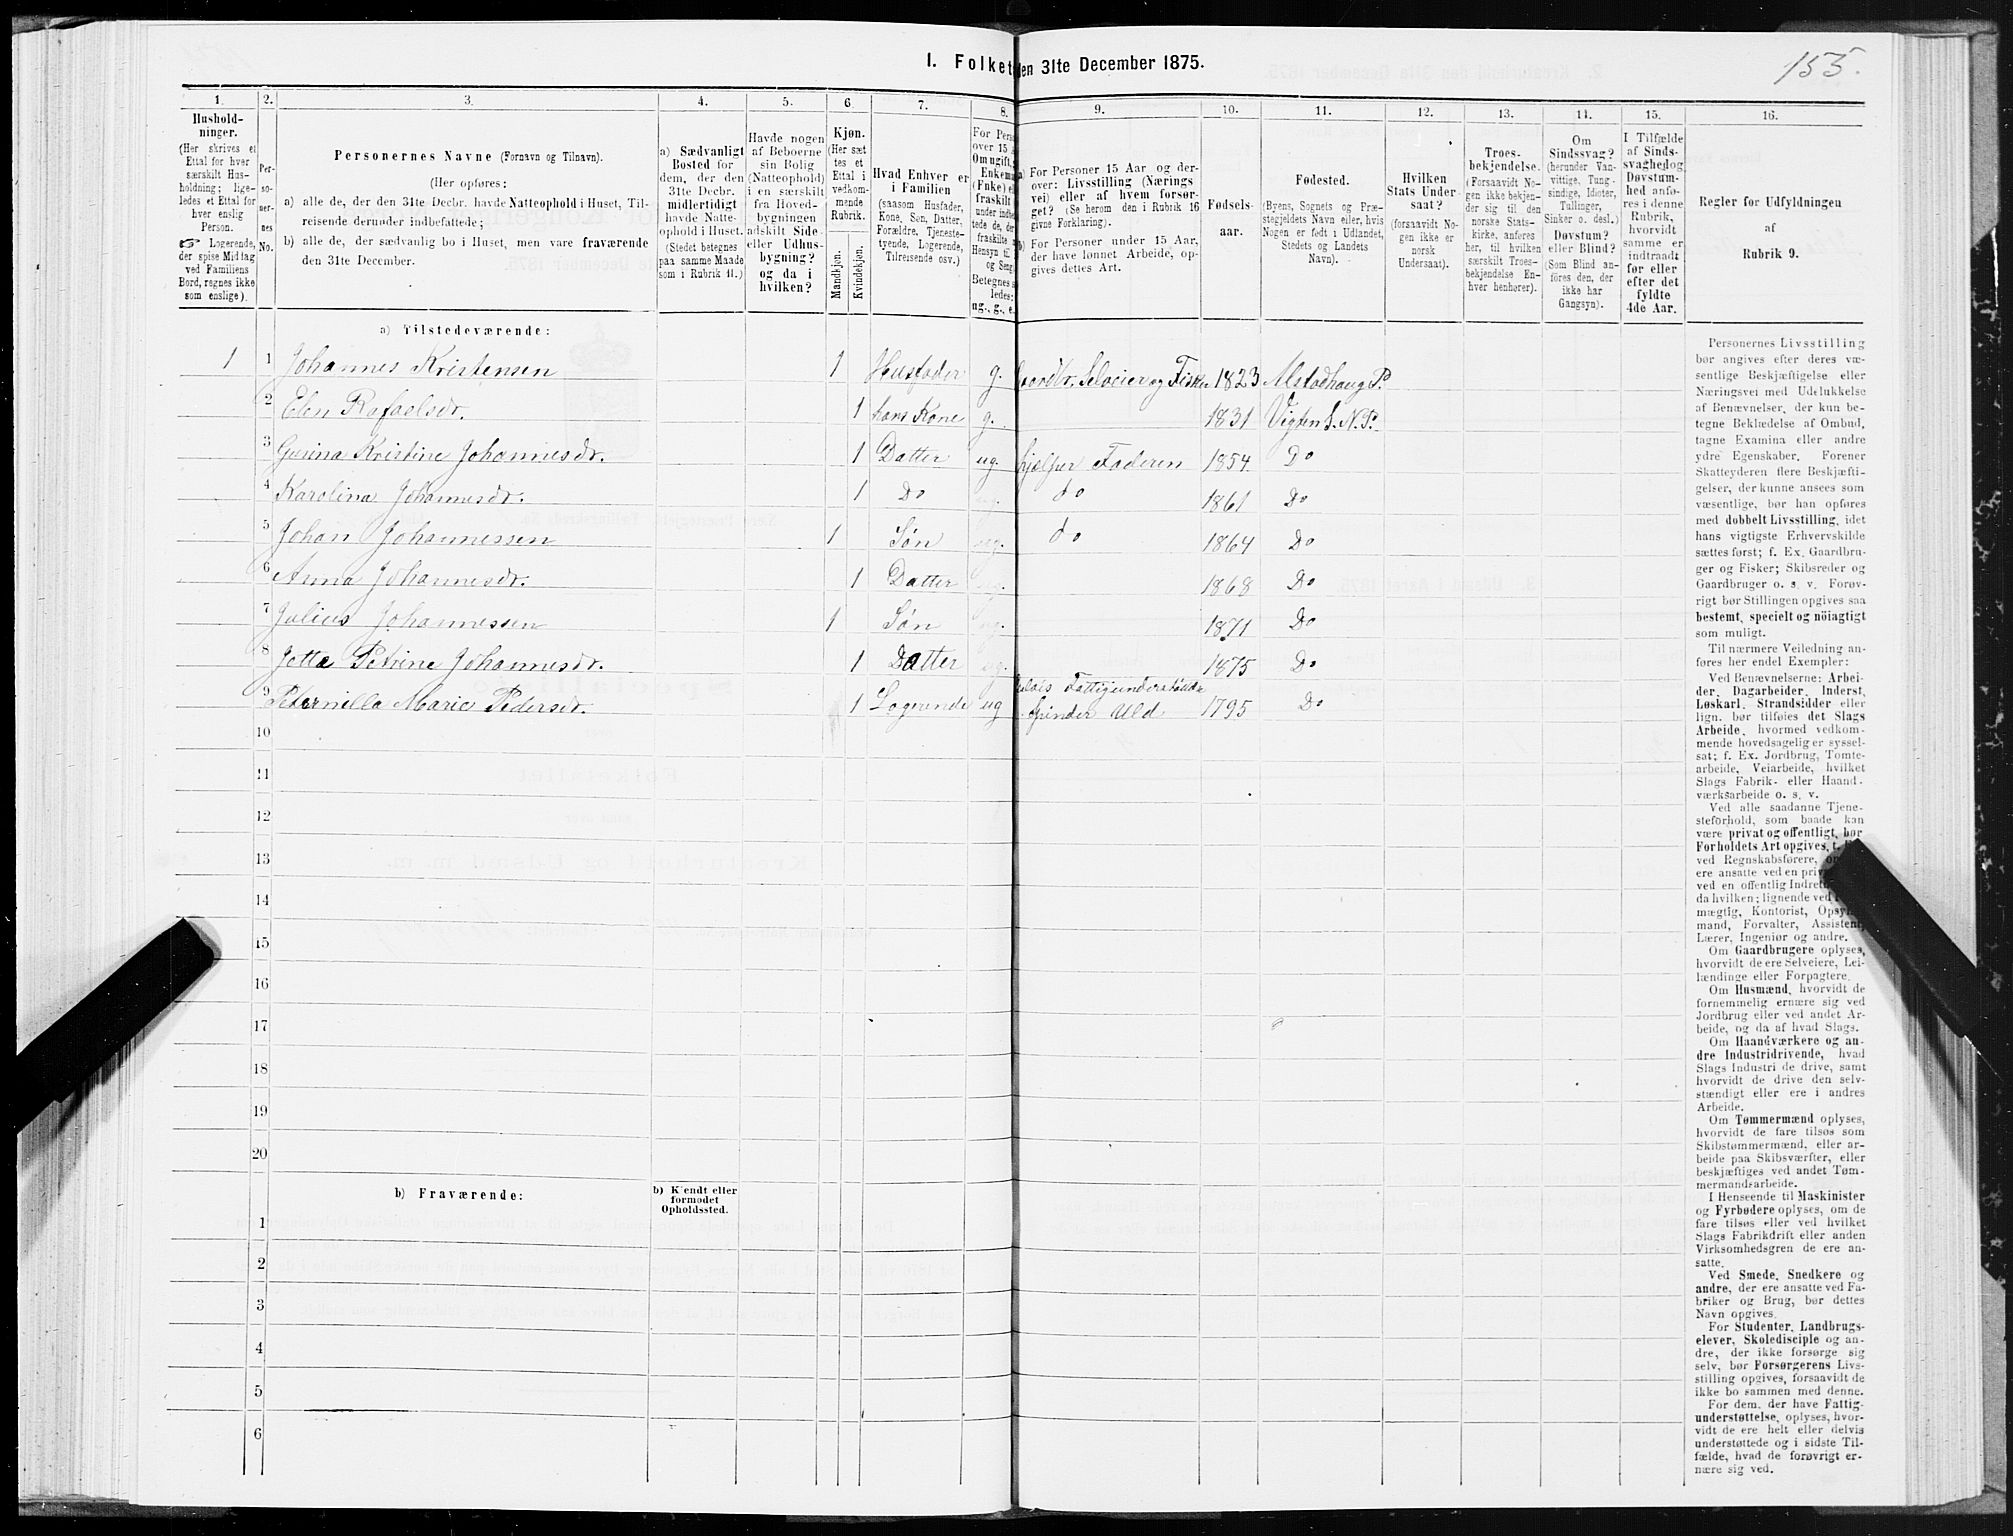 155.
I. Folket
den 31te December 1875.
1. 2. 3. 4. 5. 6. 7. 8. 9. 10. 11. 12. 13. 14. 15. 16.
Hushold-
ninger.
(Her skrives et
Ettal for hver
særskilt Hus-
holdning; lige-
ledes et Ettal for
hver enslig
Person.
☞ Logerende,
der spise Middag
ved Familiens
Bord, regnes ikke
som enslige).
Per-
so-
ner-
nes
No.
Personernes Navne (Fornavn og Tilnavn).
(Her opføres:
a) alle de, der den 31te Decbr. havde Natteophold i Huset, Til-
reisende derunder indbefattede;
b) alle de, der sædvanlig bo i Huset, men vare fraværende
den 31te December.
a) Sædvanligt
Bosted for
dem, der den
31te Decbr.
midlertidigt
havde Natte-
ophold i Huset.
(Stedet betegnes
paa samme Maade
som i Rubrik 11.)
Havde nogen
af Beboerne
sin Bolig
(Natteophold)
i en særskilt
fra Hoved-
bygningen
adskilt Side-
eller Udhus-
bygning?
og da i
hvilken?
Kjøn.
(Her sæt
tes et
Ettal i
vedkom-
mende
Rubrik.
Mandkjøn.
Kvindekjøn.
Hvad Enhver er
i Familien
(saasom Husfader,
Kone, Søn, Datter,
Forældre, Tjeneste-
tyende, Logerende,
Tilreisende osv.)
For Pers
over 15 a
Om ugift,
Enkema
(Enke) e
fraskilt
under indbe
tede de, de
fraskilte
Hensyn til
og Seng
Betegnes s
ledes:
ug., g., e.
a) For Personer 15 Aar og der-
over: Livsstilling (Nærings
vei) eller af hvem forsør-
get? (Se herom den i Rubrik 16
givne Forklaring).
b) For Personer under 15 Aar,
der have lønnet Arbeide, op-
gives dettes Art.
Fødsels-
aar.
Fødested.
(Byens, Sognets og Præ-
stegjeldets Navn eller, hvis
Nogen er født i Udlandet,
Stedets og Landets
Navn).
Hvilken
Stats Under-
saat?
(forsaavidt No-
gen ikke er
norsk
Undersaat).
Troes-
bekjendelse.
(Forsaavidt No-
gen ikke bekjen-
der sig til den
norske Stats-
kirke, anføres
her, til hvilken
særskilt Troes-
bekjendelse En-
hver henhører).
Om
Sindssvag?
(herunder Van-
vittige, Tung-
sindige, Idioter,
Tullinger,
Sinker o. desl.)
Døvstum?
eller Blind?
(Som Blind an-
føres den, der
ikke har
Gangsyn).
I Tilfælde
af Sinds-
svaghed og
Døvstum-
hed anfø-
res i denne
Rubrik,
hvorvidt
samme er
indtraadt
før eller
efter det
fyldte
4de Aar.
Regler for Udfyldningen
af
Rubrik 9.
a) Tilstedeværende:
1 1 Johannes Kristensen 1 Husfader g. Gaardbr. Selveier og Fisker 1823 Alstadhaug P.
2 Elen Rafaelsdr. 1 hans Kone g. 1831 Vigten S. N. P.
3 Gurina Kristine Johannesdr. 1 Datter ug. hjælper Faderen 1854 Do
4 Karolina Johannesdr. 1 Do ug. do 1861 Do
5 Johan Johannessen 1 Søn ug. do 1864 Do
6 Anna Johannesdr. 1 Datter ug. 1868 Do
7 Julius Johannessen 1 Søn ug. 1871 Do
8 Jetta Petrine Johannesdr. 1 Datter ug. 1875 Do
9 Peternilla Marie Pedersdr. 1 Logerende ug delvis Fattigunderstøttet
Spinder Uld 1795 Do
10
11
12
13
14
15
16
17
18
19
20
b) Fraværende:
b) Kjendt eller
formodet
Opholdssted.
1
2
3
4
5
6
Personernes Livsstilling
bør angives efter deres væ-
sentlige Beskjæftigelse eller
Næringsvei med Udelukkelse
af Benævnelser, der kun be-
tegne Beklædelse af Ombud,
tagne Examina eller andre
ydre Egenskaber. Forener
Skatteyderen flere Beskjæfti-
gelser, der kunne ansees som
væsentlige, bør han opføres
med dobbelt Livsstilling, idet
hans vigtigste Erhvervskilde
sættes først; f. Ex. Gaardbru-
ger og Fisker; Skibsreder og
Gaardbruger o. s. v. Forøv-
rigt bør Stillingen opgives saa
bestemt, specielt og nöiagtigt
som muligt.
Til nærmere Veiledning an-
føres her endel Exempler:
Ved Benævnelserne: Arbei-
der, Dagarbeider, Inderst,
Løskarl, Strandsidder eller
lign. bør tilføies det Slags
Arbeide, hvormed vedkom-
mende hovedsagelig er syssel-
sat; f. Ex. Jordbrug, Tomte-
arbeide, Veiarbeide, hvilket
Slags Fabrik- eller Haand-
værksarbeide o. s. v.
Ved alle saadanne Tjene-
steforhold, som baade kan
være privat og offentligt, bør
Forholdets Art opgives, t.
ved Regnskabsførere, om
ere ansatte ved en priv
ved en offentlig Indret
da hvilken; lignende ved
mægtig, Kontorist, Opsyns
mand, Forvalter, Assistent,
Lærer, Ingeniør og andre.
Om Gaardbrugere oplyses,
hvorvidt de ere Selveiere, Lei-
lændinge eller Forpagtere.
Om Husmænd, hvorvidt de
fornemmelig ernære sig ved
Jordbrug eller ved andet Ar-
beide, og da af hvad Slags.
Om Haandværkere og an-
dre Industridrivende, hvad
Slags Industri de drive, samt
hvorvidt de drive den selv-
stændigt eller ere i andres
Arbeide.
Om Tømmermænd oplyses,
hvorvidt de fare tilsøs som
Skibstømmermænd, eller ar-
beide paa Skibsværfter, eller
beskjæftiges ved andet Tøm-
mermandsarbeide.
I Henseende til Maskinister
og Fyrbødere oplyses, om de
fare tilsøs eller ved hvilket
Slags Fabrikdrift eller anden
Virksomhedsgren de ere an-
satte.
Ved Smede, Snedkere og
andre, der ere ansatte ved Fa-
briker og Brug, bør dettes
Navn opgives.
For Studenter, Landbrugs-
elever, Skoledisciple og an-
dre, der ikke forsørge sig
selv, bør Forsørgerens Livs-
stilling opgives, forsaavidt de
ikke bo sammen med denne.
For dem, der have Fattig-
understøttelse, oplyses, hvor-
vidt de ere helt eller delvis
understøttede og i sidste Til-
fælde, hvad de forøvrigt er-
nære sig ved.